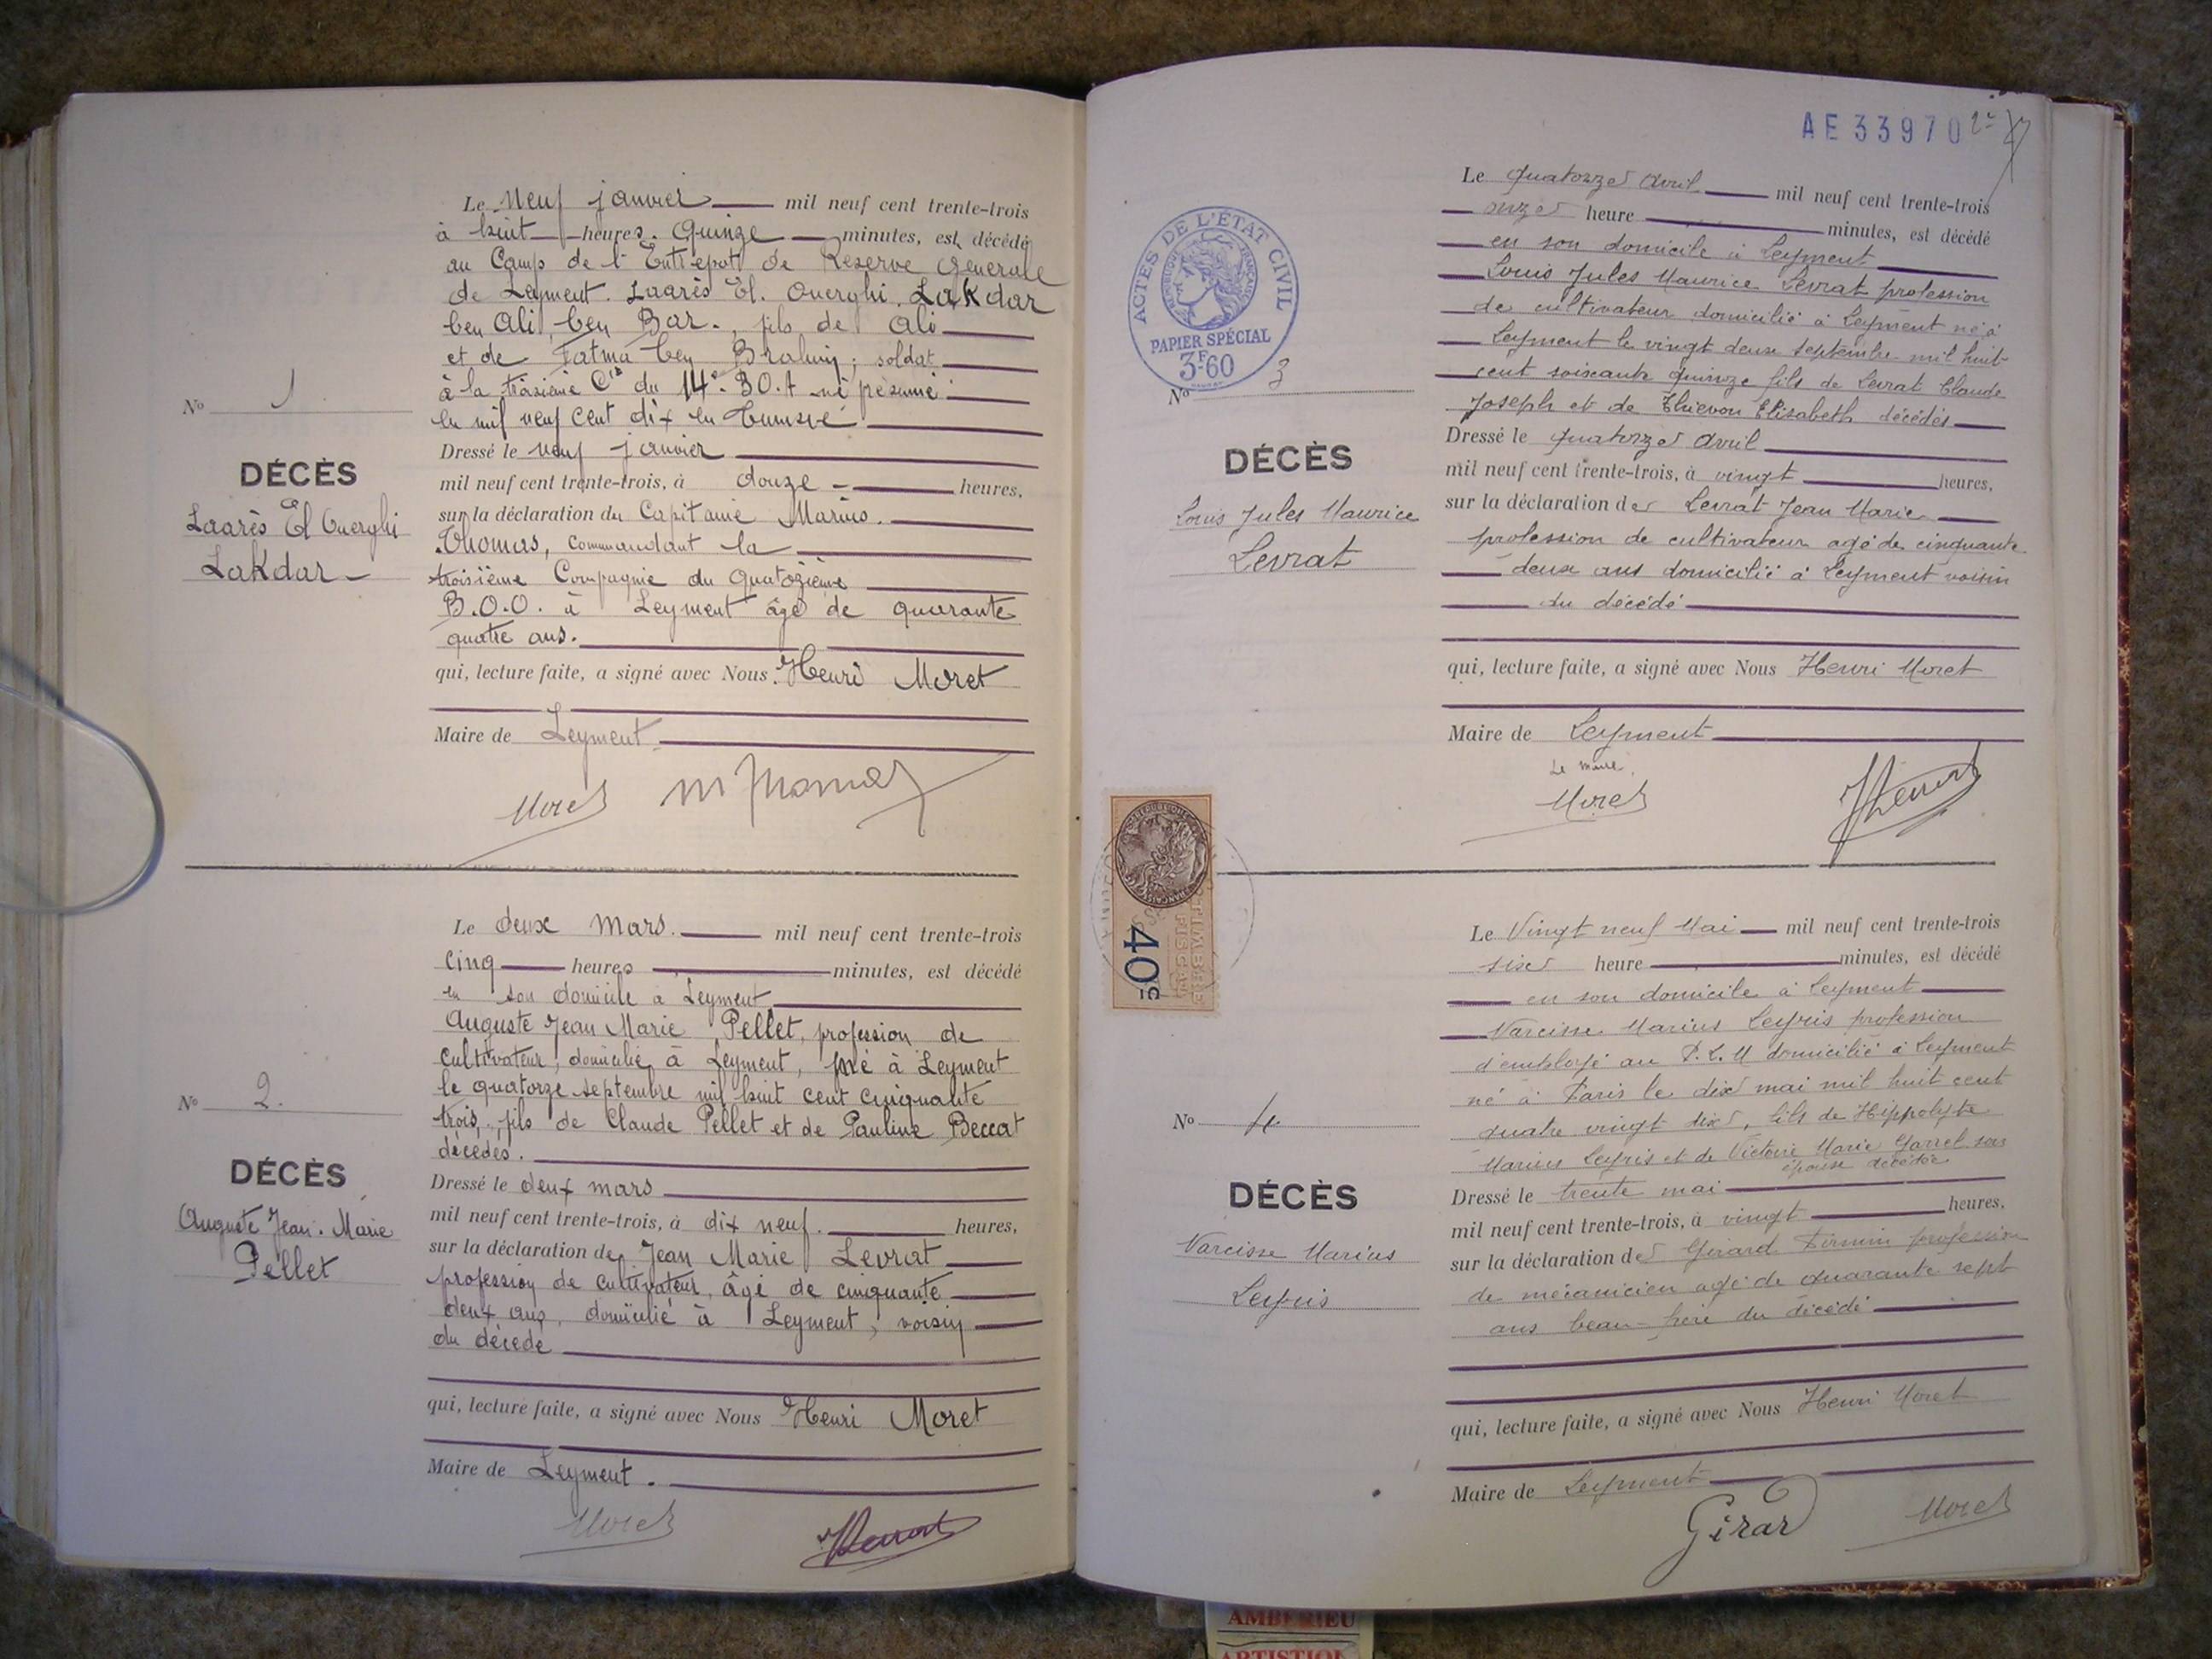 Le neuf janvier mil neuf cent trente-trois
à huit heures. Quinze minutes, est décédé
au Camp de l'Entrepôt de Réserve Générale
de Leyment. Laarès El. Ouerghi. Lakdar
ben Ali ben Bar., fils de Ali
et de Fatma ben Brahim; soldat
à la troisième Cie du 14e. B.O.A né présumé
en mil neuf cent dix en Tunisie
No 1
DÉCÈS
Laarès El Ouerghi
Lakdar
Dressé le neuf janvier
mil neuf cent trente-trois, à douze heures,
sur la déclaration du Capitaine Marius.
Thomas, Commandant la
troisième Compagnie du quatorzième
B.O.O. à Leyment âgé de quarante
quatre ans.
qui, lecture faite, a signé avec Nous. Henri Moret
Maire de Leyment
Moret M Thomas
Le deux Mars. mil neuf cent trente-trois
cinq heures minutes, est décédé
en son domicile à Leyment
Auguste Jean Marie Pellet, profession de
cultivateur, domicilié à Leyment, né à Leyment
le quatorze septembre mil huit cent cinquante
trois, fils de Claude Pellet et de Pauline Beccat
décédés.
No 2.
DÉCÈS
Auguste Jean. Marie
Pellet
Dressé le deux mars
mil neuf cent trente-trois, à dix neuf. heures,
sur la déclaration de Jean Marie Levrat
profession de cultivateur, âgé de cinquante
deux ans, domicilié à Leyment, voisin
du décédé
qui, lecture faite, a signé avec Nous Henri Moret
Maire de Leyment.
Moret Levrat
AE 33970
ACTES DE L'ÉTAT CIVIL
RÉPUBLIQUE FRANÇAISE
PAPIER SPÉCIAL
3F60
Le quatorze avril mil neuf cent trente-trois
onze heure minutes, est décédé
en son domicile à Leyment
Louis Jules Maurice Levrat profession
de cultivateur domicilié à Leyment né à
Leyment le vingt deux septembre mil huit
cent soixante quinze fils de Levrat Claude
Joseph et de Thievon Elisabeth décédés
No 3
DÉCÈS
Louis Jules Maurice
Levrat
Dressé le quatorze avril
mil neuf cent trente-trois, à vingt heures,
sur la déclaration de Levrat Jean Marie
profession de cultivateur agé de cinquante
deux ans domicilié à Leyment voisin
du décédé
qui, lecture faite, a signé avec Nous Henri Moret
Maire de Leyment
Le Maire,
Moret Levrat
TIMBRE
FISCAL
40
Le Vingt neuf Mai mil neuf cent trente-trois
six heure minutes, est décédé
en son domicile à Leyment
Narcisse Marius Leyris profession
d'employé au P.L.M domicilié à Leyment
né à Paris le dix mai mil huit cent
quatre vingt dix, fils de Hippolyte
Marius Leyris et de Victoire Marie Garrel son
épouse décédée
No 4
DÉCÈS
Narcisse Marius
Leyris
Dressé le trente mai
mil neuf cent trente-trois, à vingt heures,
sur la déclaration de Girard Firmin profession
de mécanicien agé de quarante sept
ans beau-frère du décédé
qui, lecture faite, a signé avec Nous Henri Moret
Maire de Leyment
Girard Moret
AMBERIEU